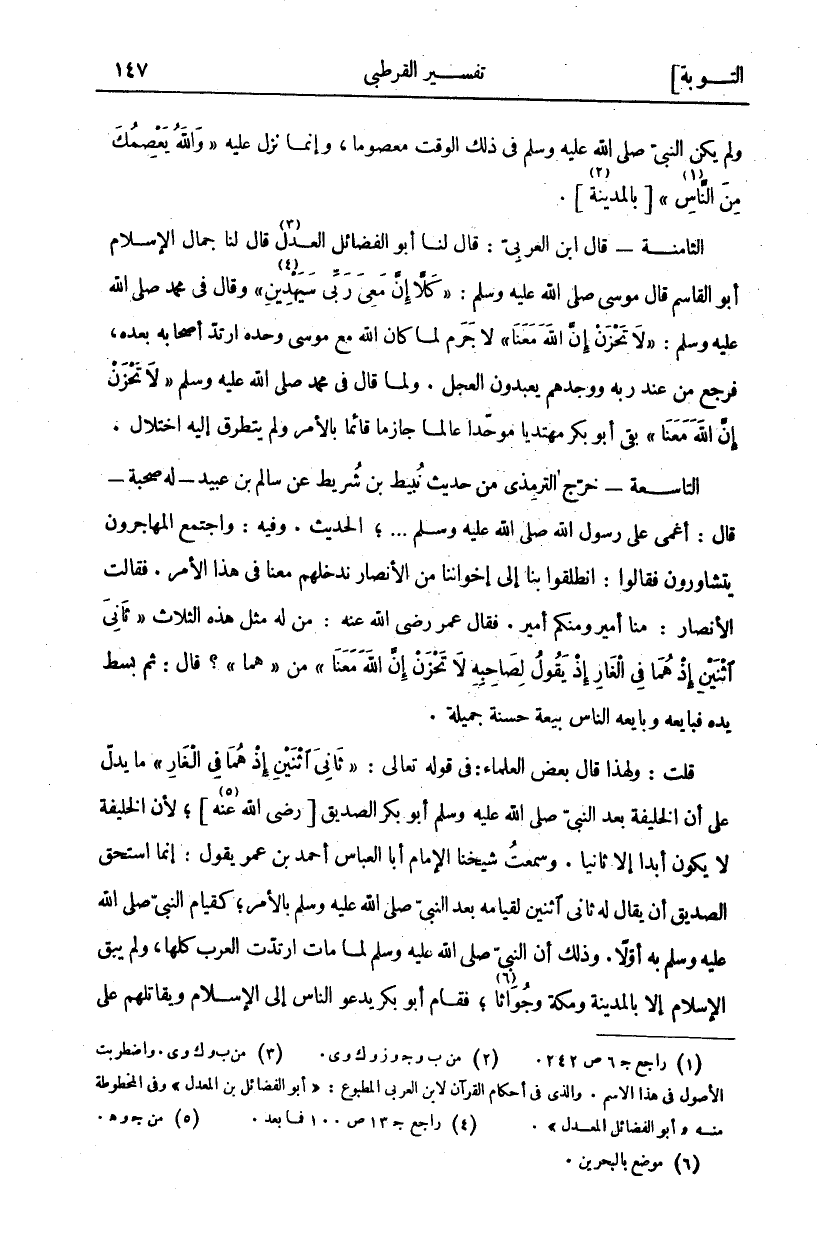 التـــوبة] تفســـير القرطبي ١٤٧
ولم يكن النبيّ صلى الله عليه وسلم فى ذلك الوقت معصوما، وإنمـا نزل عليه « وَاللَّهُ يَعْصِمُكَ
مِنَ النَّاسِ(١) » [ بالمدينة(٢) ] .
الثامنـــة — قال ابن العربىّ : قال لنــا أبو الفضائل العــدل(٣) قال لنا جمال الإســلام
أبو القاسم قال موسى صلى الله عليه وسلم : «كَلَّا إِنَّ مَعِىَ رَبِّى سَيَهْدِينِ(٤)» وقال فى محمد صلى الله
عليه وسلم : «لاَ تَحْزَنْ إِنَّ اللَّهَ مَعَنَا» لا جَرَم لمـا كان الله مع موسى وحده ارتدّ أصحابه بعده،
فرجع من عند ربه ووجدهم يعبدون العجل . ولمـا قال فى محمد صلى الله عليه وسلم « لاَ تَحْزَنْ
إِنَّ اللَّهَ مَعَنَا » بقى أبو بكر مهتديا موحّدا عالمـا جازما قائما بالأمر ولم يتطرق إليه اختلال .
التاســـعة — خرّج الترمذى من حديث نُبيط بن شُريط عن سالم بن عبيد — له صحبة —
قال : أغمى على رسول الله صلى الله عليه وســلم ... ؛ الحديث . وفيه : واجتمع المهاجرون
يتشاورون فقالوا : انطلقوا بنا إلى إخواننا من الأنصار ندخلهم معنا فى هذا الأمر . فقالت
الأنصار : منا أمير ومنكم أمير . فقال عمر رضى الله عنه : من له مثل هذه الثلاث « ثَانِىَ
ٱثْنَيْنِ إِذْ هُمَا فِى الْغَارِ إِذْ يَقُولُ لِصَاحِبِهِ لَا تَحْزَنْ إِنَّ اللَّهَ مَعَنَا » من « هما » ؟ قال : ثم بسط
يده فبايعه وبايعه الناس بيعة حسنة جميلة .
قلت : ولهذا قال بعض العلماء: فى قوله تعالى : « ثَانِىَ ٱثْنَيْنِ إِذْ هُمَا فِى الْغَارِ » ما يدلّ
على أن الخليفة بعد النبىّ صلى الله عليه وسلم أبو بكر الصديق [ رضى الله عنه(٥) ] ؛ لأن الخليفة
لا يكون أبدا إلا ثانيا . وسمعتُ شيخنا الإمام أبا العباس أحمد بن عمر يقول : إنما استحق
الصديق أن يقال له ثانى ٱثنين لقيامه بعد النبىّ صلى الله عليه وسلم بالأمر؛ كقيام النبىّ صلى الله
عليه وسلم به أوّلًا. وذلك أن النبىّ صلى الله عليه وسلم لمـا مات ارتدّت العرب كلها، ولم يبق
الإسلام إلا بالمدينة ومكة وجُوَاثا(٦) ؛ فقــام أبو بكر يدعو الناس إلى الإســلام ويقاتلهم على
(١) راجع جـ ٦ ص ٢٤٢. (٢) من ب و جـ و ز و ك و ى. (٣) من ب و ك و ى. واضطربت
الأصول فى هذا الاسم . والذى فى أحكام القرآن لابن العربى المطبوع : « أبو الفضائل بن المعدل » وفى المخطوطة
منــه « أبو الفضائل المعــدل » . (٤) راجع جـ ١٣ ص ١٠٠ فــا بعد . (٥) من جـ و هـ .
(٦) موضع بالبحرين .